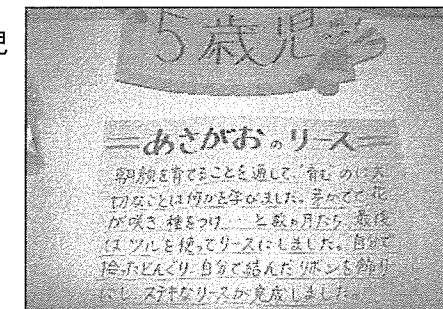 児
5歳児
あさがおのリース
朝顔を育てることを通して、育むのに大
切なことは何かを学びました。芽がでて、花
が咲き、種をつけ…と数ヶ月たち、最後
はツルを使ってリースにしました。自分で
拾ったどんぐり、自分で結んだリボンを飾り
にし、ステキなリースが完成しました。